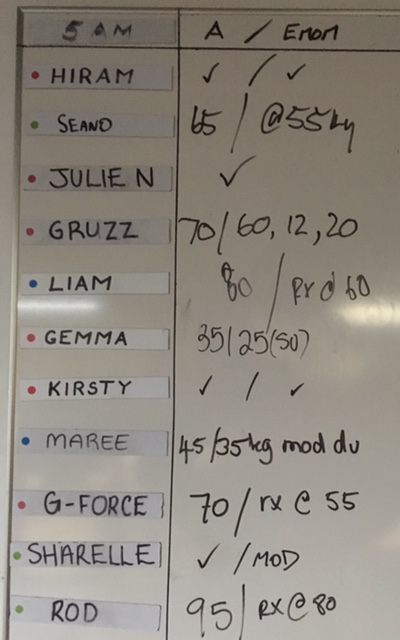 5 AM A / Emom
• HIRAM ✓ / ✓
• SEANO 65 / @55kg
• JULIE N ✓
• GRUZZ 70 / 60, 12, 20
• LIAM 80 / Rx @ 60
• GEMMA 35 / 25 (50)
• KIRSTY ✓ / ✓
• MAREE 45 / 35kg mod du
• G-FORCE 70 / rx @ 55
• SHARELLE ✓ / MOD
• ROD 95 / RX @ 80